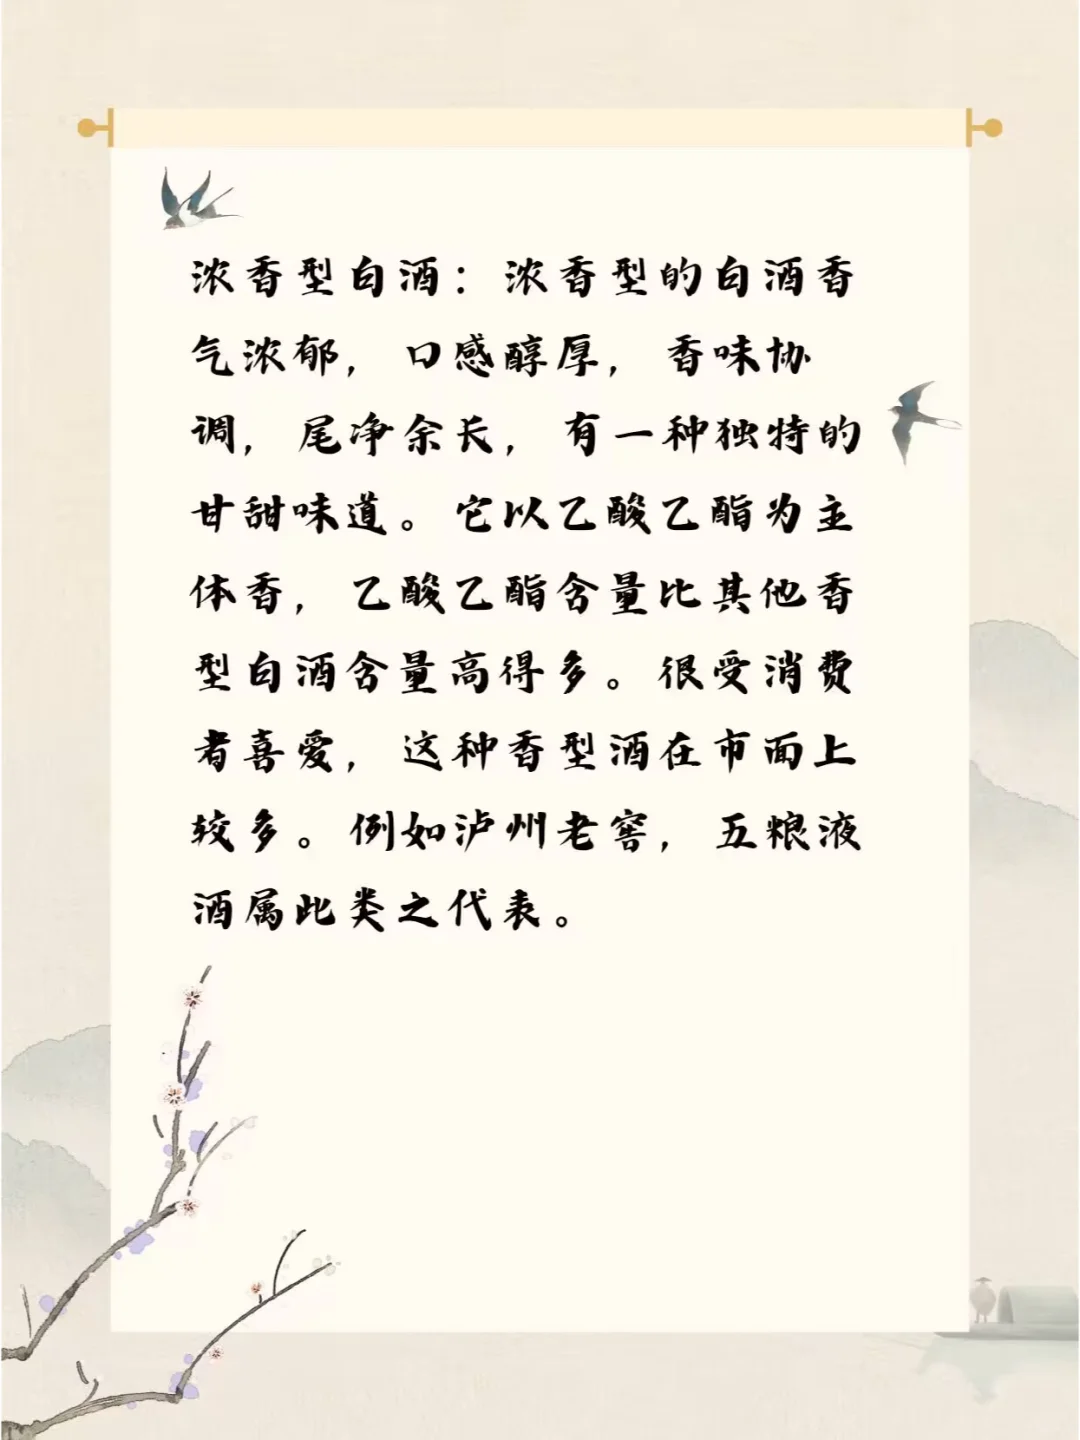 浓香型白酒：浓香型的白酒香
气浓郁，口感醇厚，香味协
调，尾净余长，有一种独特的
甘甜味道。它以乙酸乙酯为主
体香，乙酸乙酯含量比其他香
型白酒含量高得多。很受消费
者喜爱，这种香型酒在市面上
较多。例如泸州老窖，五粮液
酒属此类之代表。